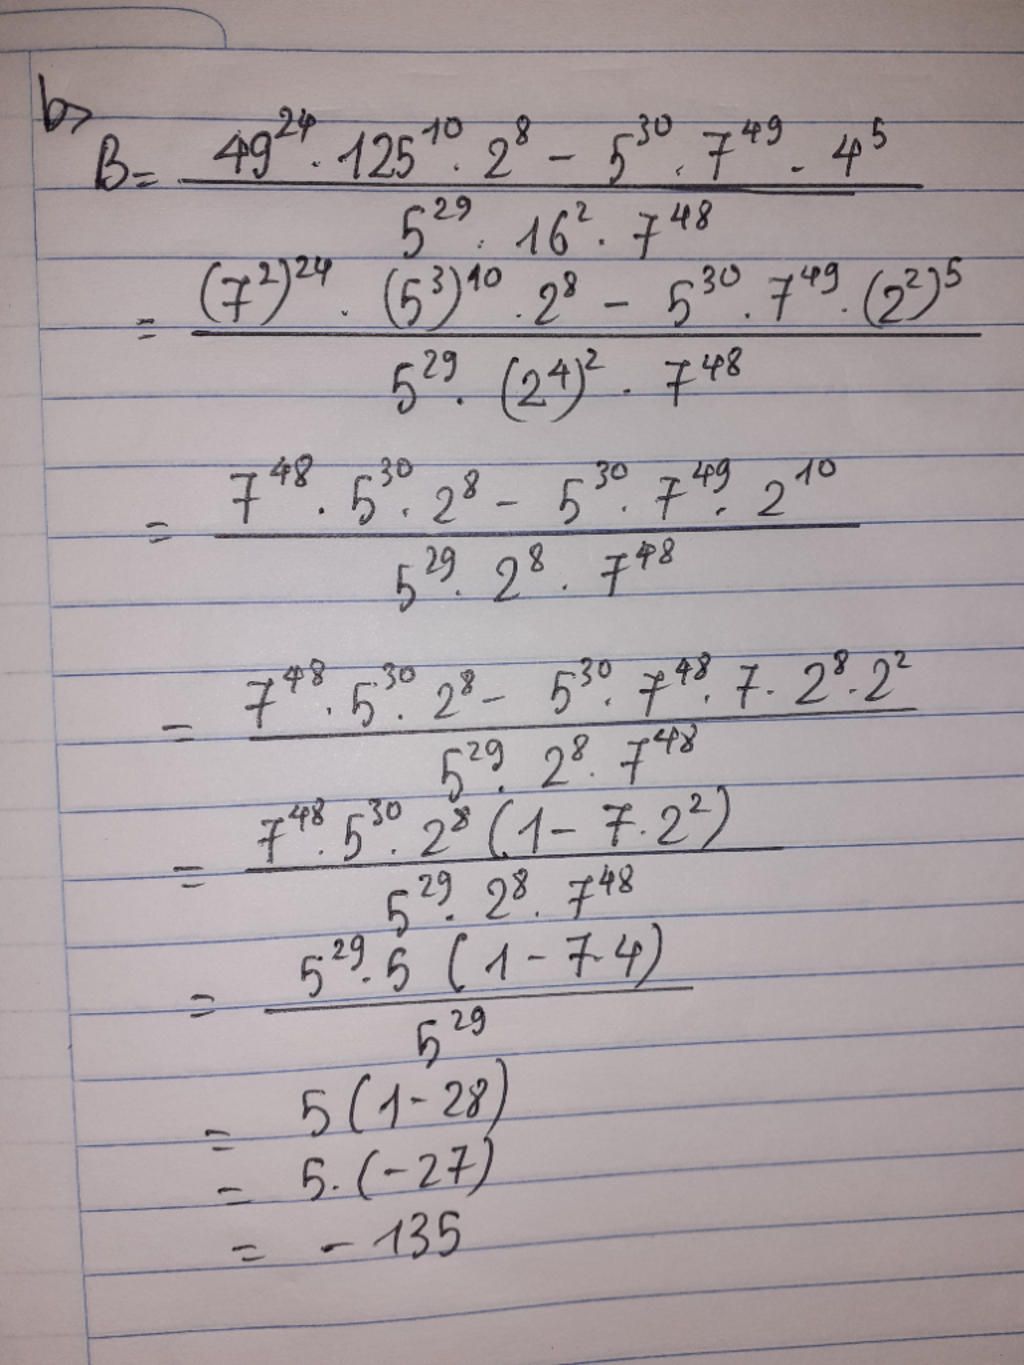 b>
B = \frac{49^{24} . 125^{10} . 2^8 - 5^{30} . 7^{49} . 4^5}{5^{29} . 16^2 . 7^{48}}
= \frac{(7^2)^{24} . (5^3)^{10} . 2^8 - 5^{30} . 7^{49} . (2^2)^5}{5^{29} . (2^4)^2 . 7^{48}}
= \frac{7^{48} . 5^{30} . 2^8 - 5^{30} . 7^{49} . 2^{10}}{5^{29} . 2^8 . 7^{48}}
= \frac{7^{48} . 5^{30} . 2^8 - 5^{30} . 7^{48} . 7 . 2^8 . 2^2}{5^{29} . 2^8 . 7^{48}}
= \frac{7^{48} . 5^{30} . 2^8 (1 - 7 . 2^2)}{5^{29} . 2^8 . 7^{48}}
= \frac{5^{29} . 5 (1 - 7 . 4)}{5^{29}}
= 5 (1 - 28)
= 5 . (-27)
= - 135